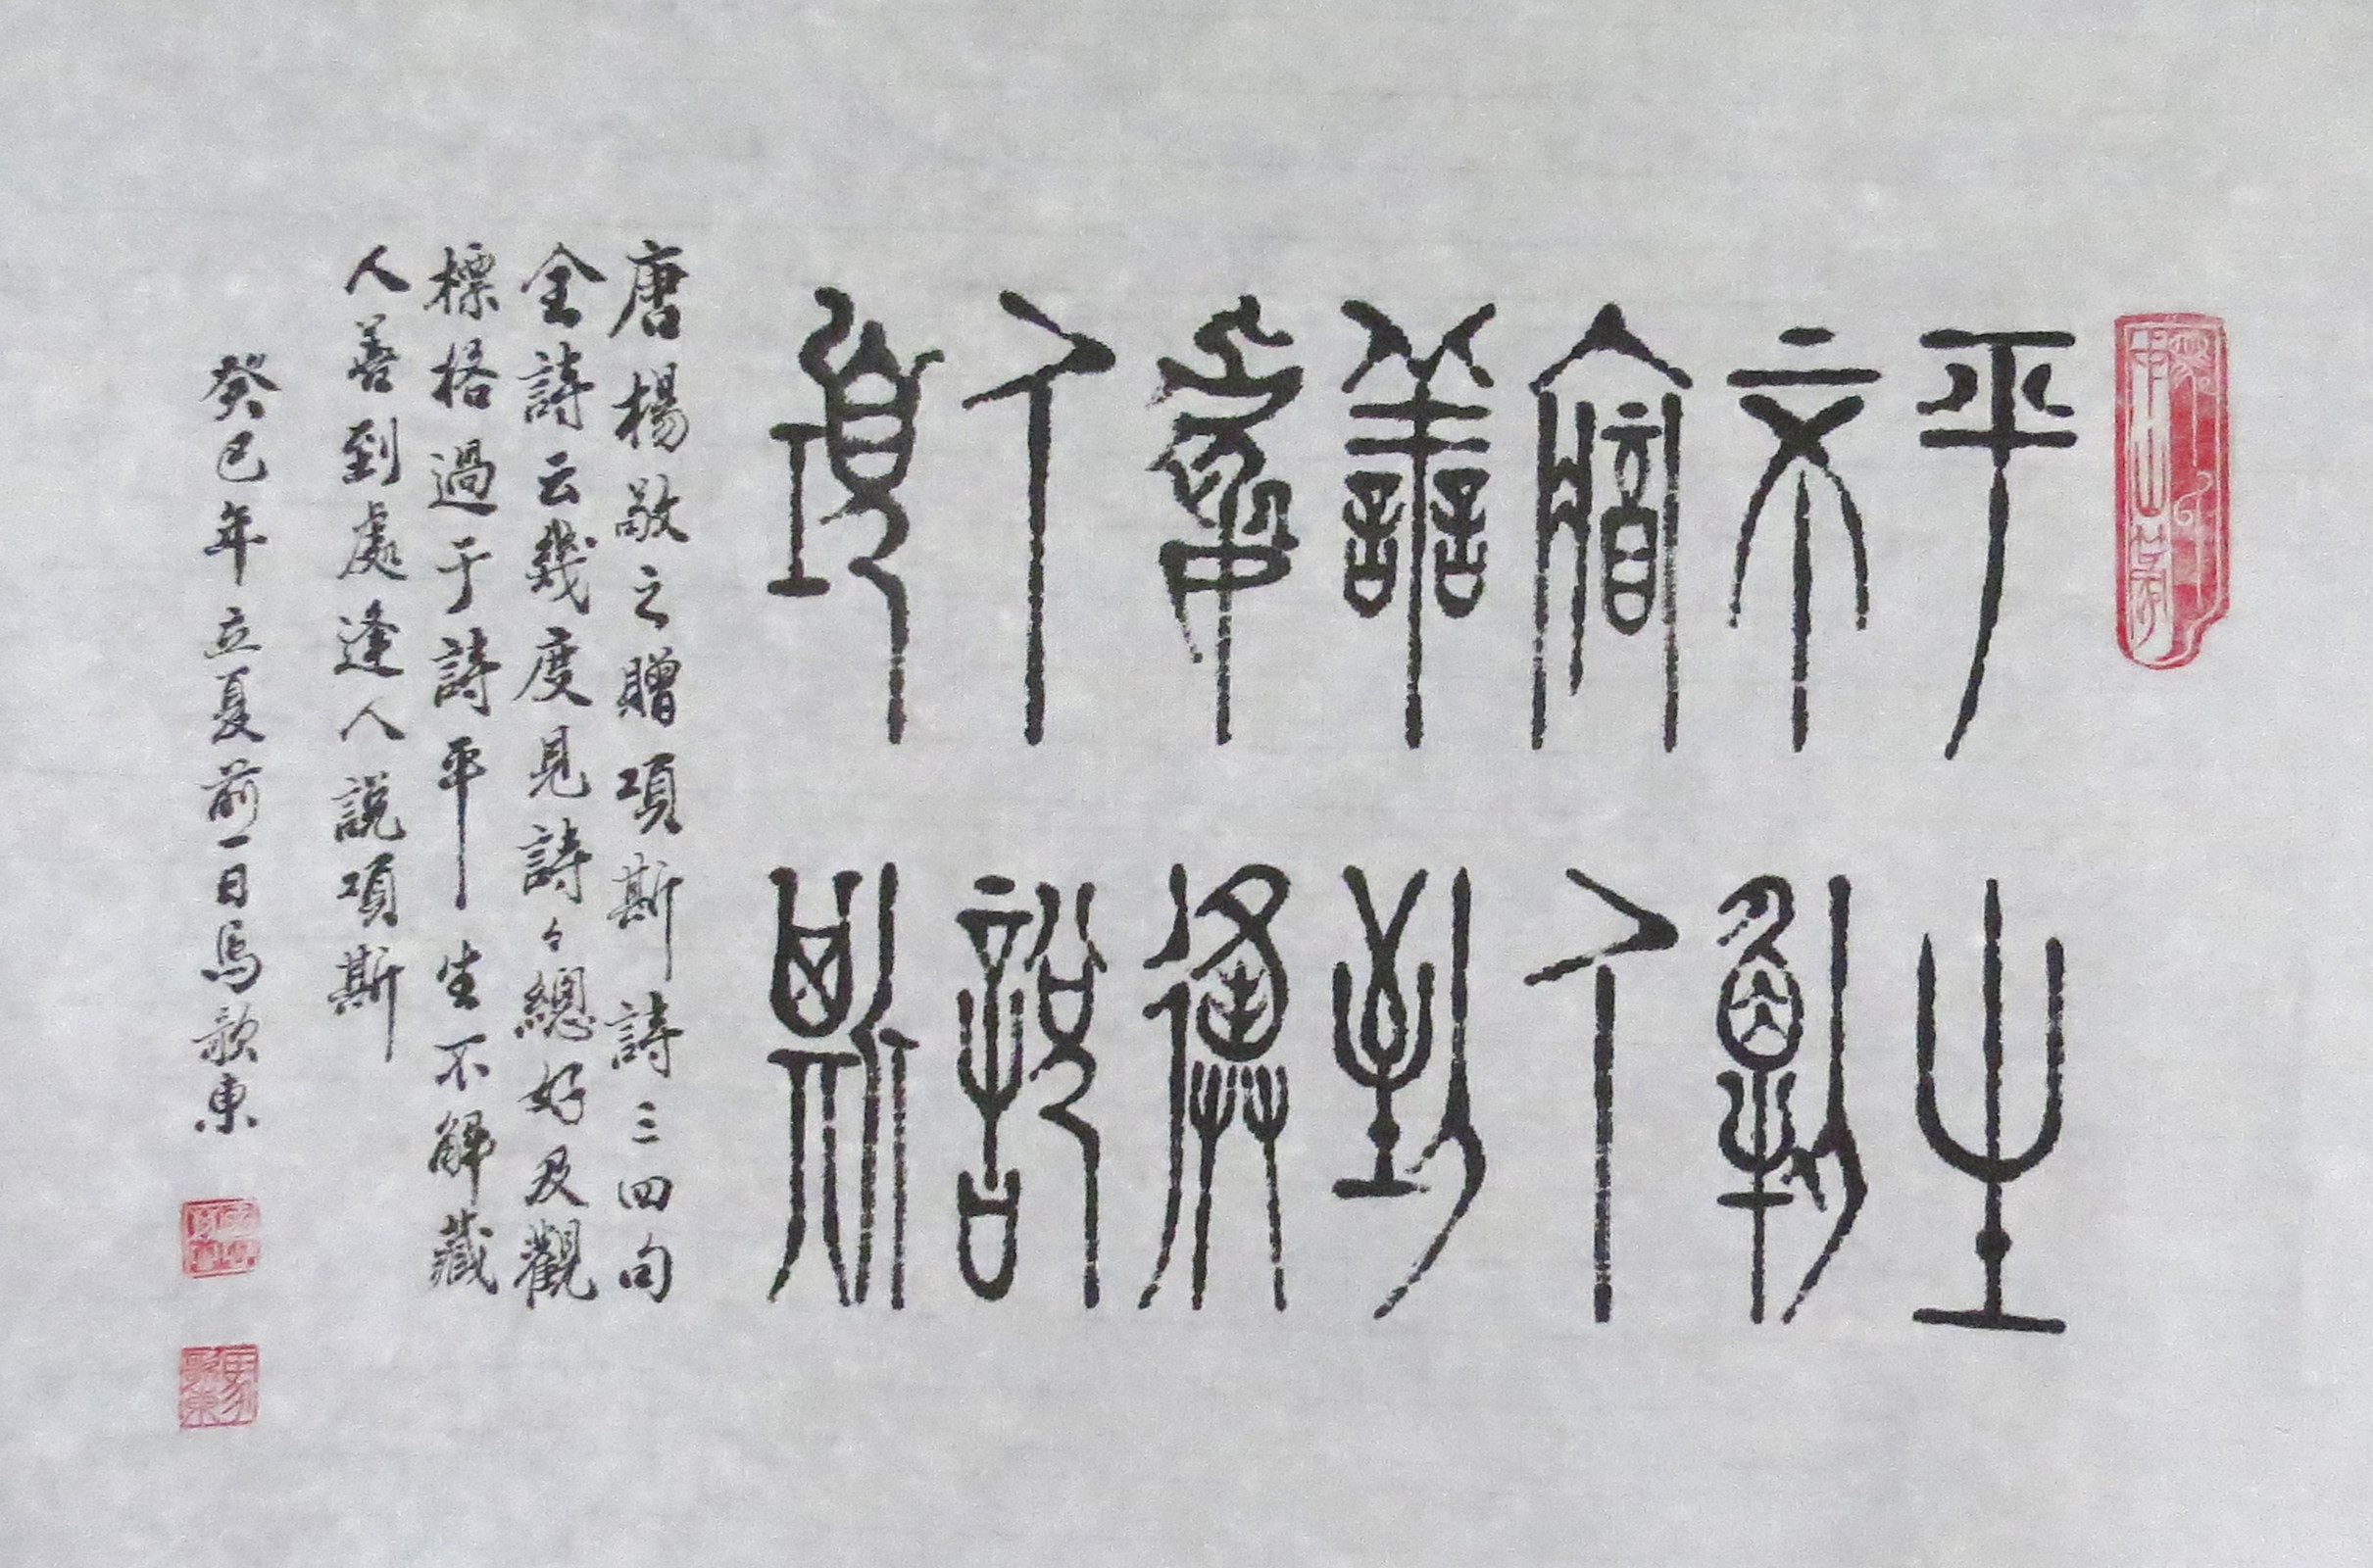 平生
不解
藏人
善到
處逢
人說
項斯
唐楊敬之贈項斯詩三四句
全詩云幾度見詩々總好及觀
標格過于詩平生不解藏
人善到處逢人說項斯
癸巳年立夏前一日馬歌東
馬歌東